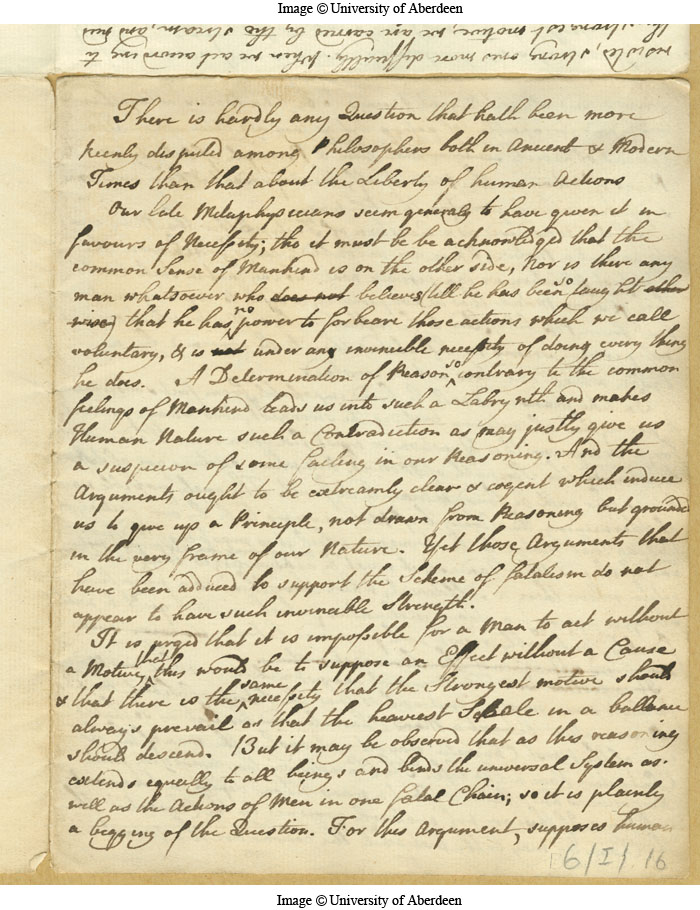 Image © University of Aberdeen
now led, strong ones more difficultly. When we act according to
the strongest motive, we are carried by the stream, and
There is hardly any Question that hath been more
keenly disputed among Philosophers both in Ancient & Modern
Times than that about the Liberty of human Actions
Our late Metaphysicians seem generaly to have given it in
favours of Necessity; tho it must be be acknowledged that the
common Sense of Mankind is on the other side, Nor is there any
man whatsoever who does not believes (till he has been so taught other
wise) that he has no power to forbeare those actions which we call
voluntary, & is not under any invincible necessity of doing every thing
he does. A Determination of Reason so contrary to the common
feelings of Mankind leads us into such a Labrynth and makes
Human Nature such a Contradiction as may justly give us
a suspicion of some failing in our Reasoning. And the
Arguments ought to be extreamly clear & cogent which induce
us to give up a Principle, not drawn from Reasoning but grounded
in the very frame of our Nature. Yet those Arguments that
have been adduced to support the Scheme of fatalism do not
appear to have such invincible Strength.
It is urged that it is impossible for a Man to act without
a Motive that this would be to suppose an Effect without a Cause
& that there is the same necessity that the Strongest motive should
always prevail as that the heaviest Scale in a ballance
should descend. But it may be observed that as this reasoning
extends equally to all beings and binds the universal System as
well as the Actions of Men in one fatal Chain; so it is plainly
a begging of the Question. For this Argument, supposes human
6/I/16
Image © University of Aberdeen